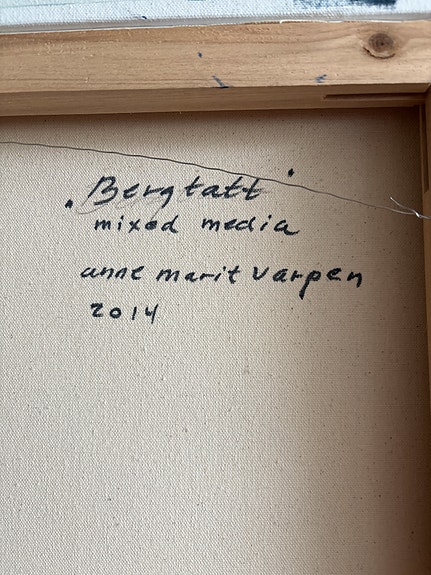 "Bergtatt"
mixed media
anne marit varpen
2014